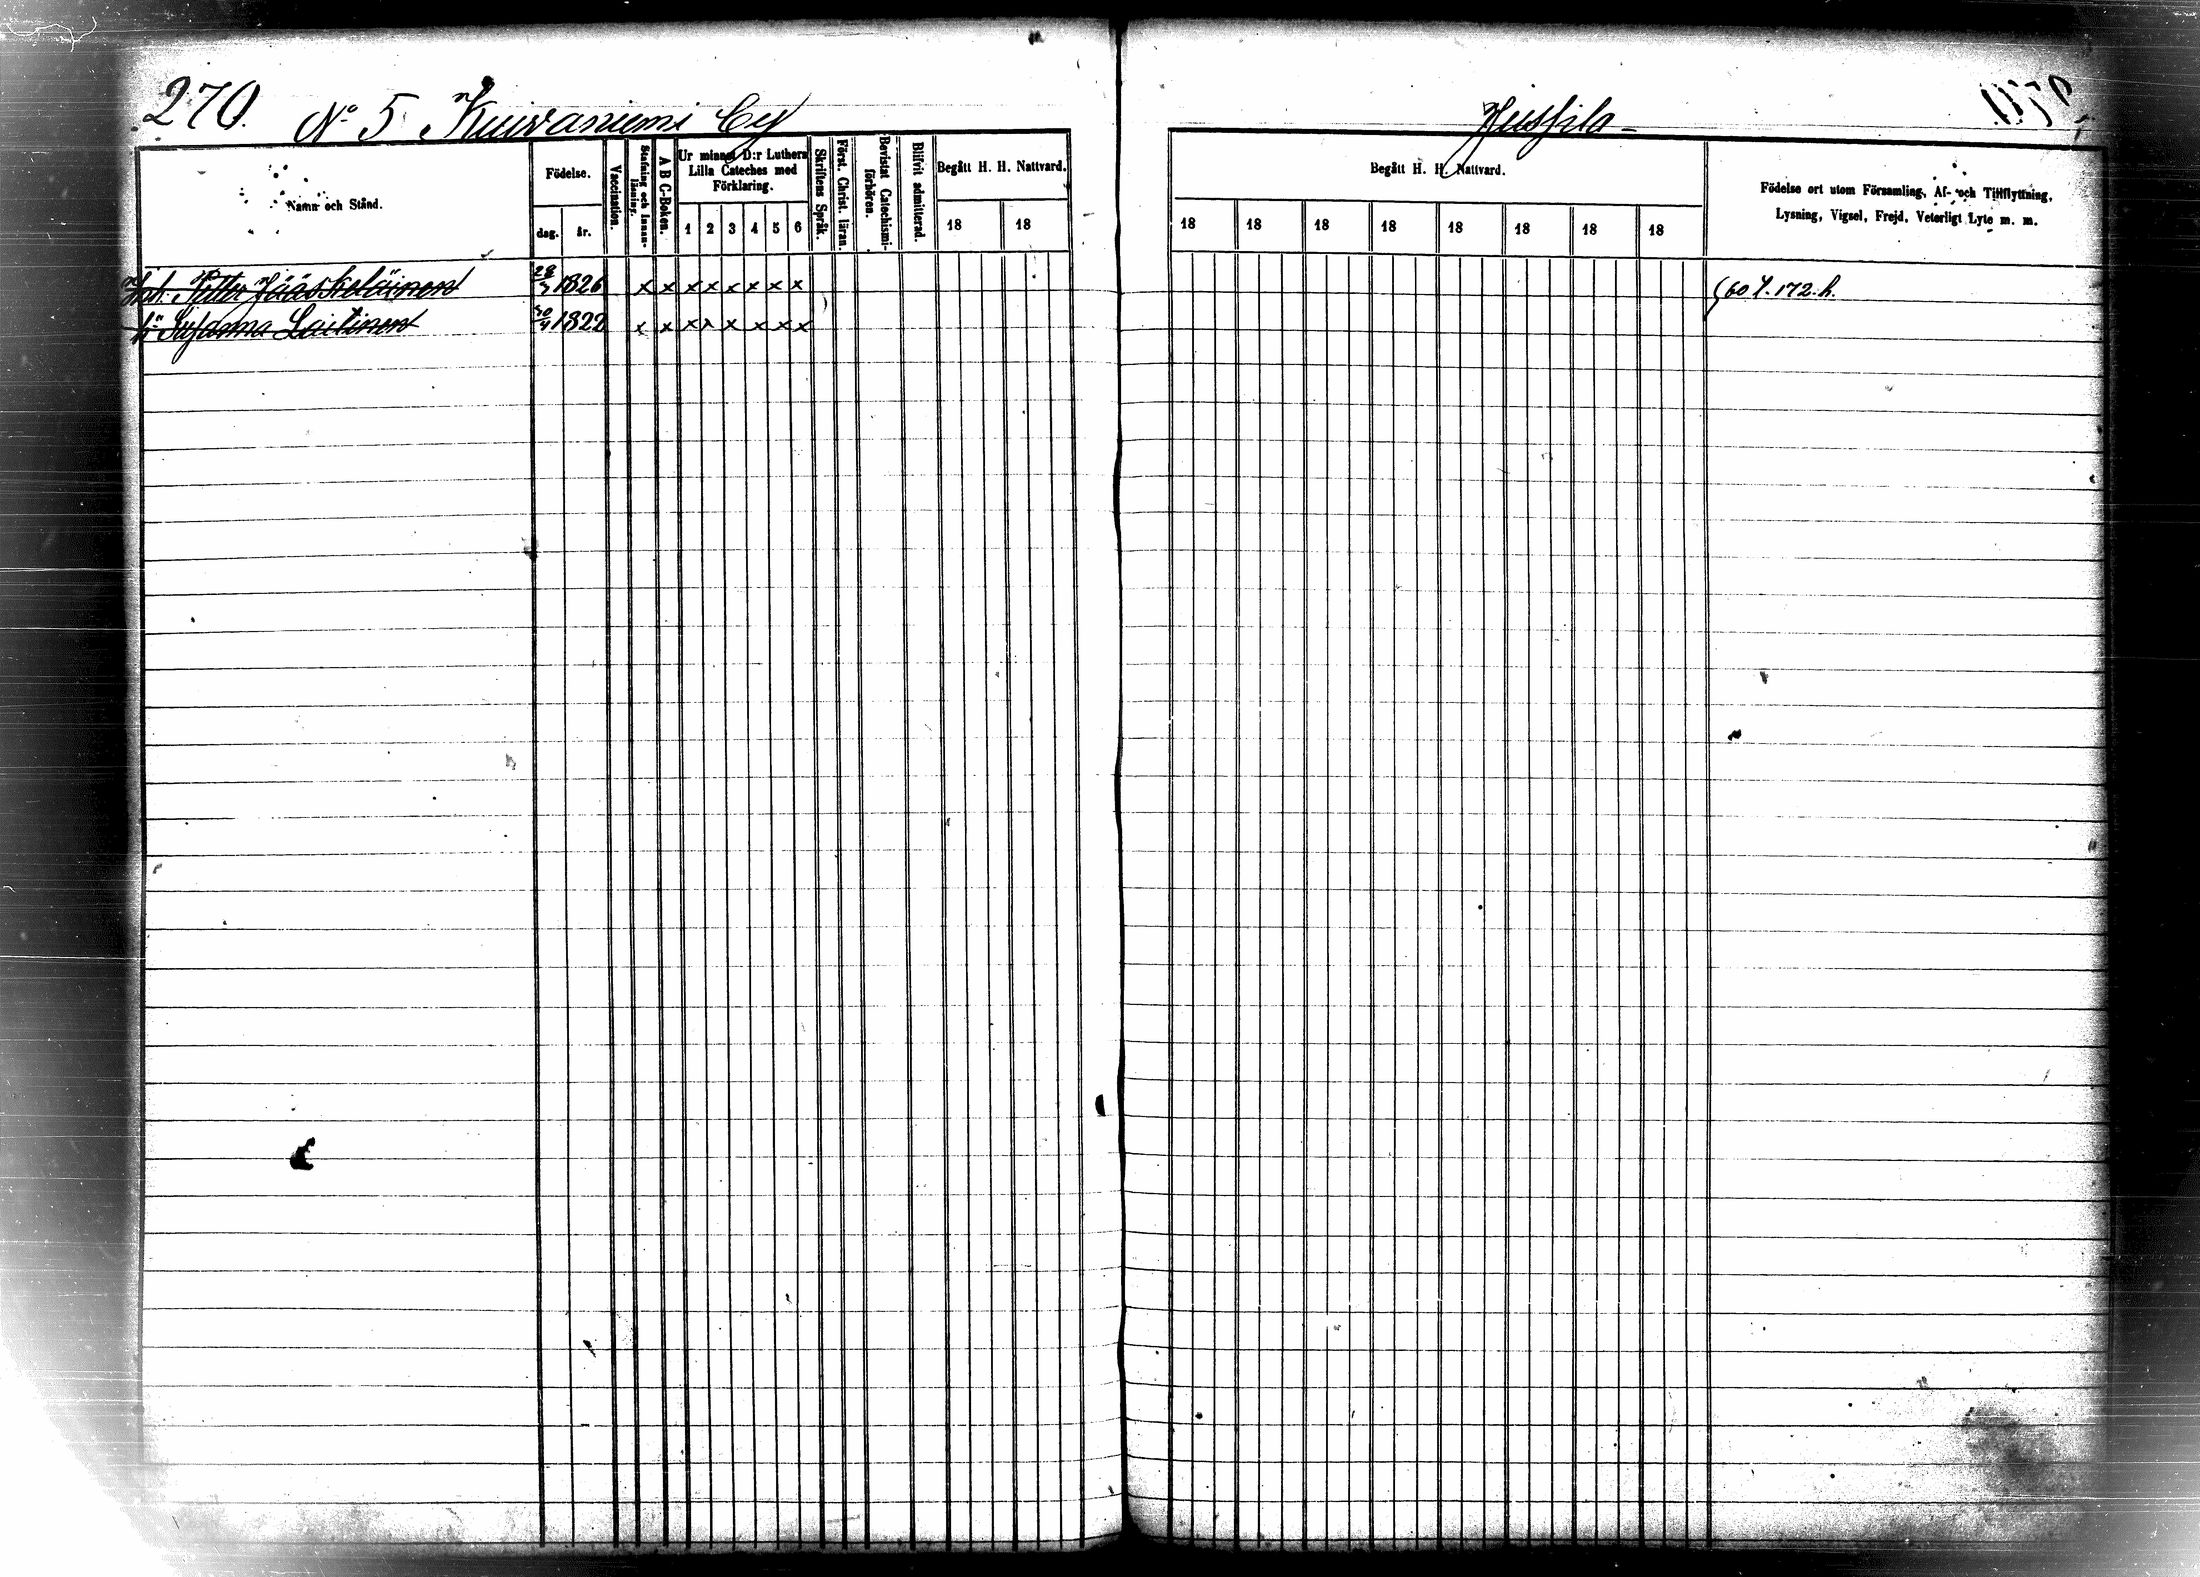 270. No 5 Kuivaniemi by
Namn och Stånd.
Födelse.
dag. år.
Vaccination.
Stafning och Innanläsning.
A B C-Boken.
Ur minnet D:r Luthers Lilla Cateches med Förklaring.
1 2 3 4 5 6
Skriftens Språk.
Först. Christ. läran.
Bevistat Catechismiförhören.
Blifvit admitterad.
Begått H. H. Nattvard.
18 18
Petter Jääskeläinen 28 1826 x x x x x x x x
Susanna Laitinen 1822 x x x x x x x x
Begått H. H. Nattvard.
18 18 18 18 18 18 18 18
Födelse ort utom Församling, Af- och Tillflyttning,
Lysning, Vigsel, Frejd, Veterligt Lyte m. m.
172. h.